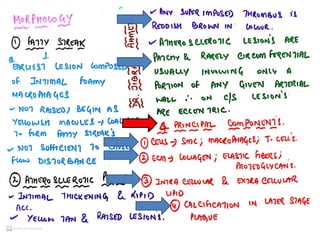 MORPHOLOGY
① FATTY STREAK
EARLIEST LESION COMPOSED
OF INTIMAL FOAMY
MACROPHAGES
✓ NOT RAISED; BEGIN AS
YELLOWISH MACULES →
TO FORM FATTY STREAK'S
✓ NOT SUFFICIENT TO
FLOW DISTURBANCE
② ATHEROSCLEROTIC
✓ INTIMAL THICKENING & LIPID
ACC.
✓ YELLOW TAN & RAISED LESIONS.
✓ ANY SUPER IMPOSED THROMBUS IS
REDDISH BROWN IN COLOUR.
✓ ATHEROSCLEROTIC LESION'S ARE
PATCHY & RARELY CIRCUMFERENTIAL
USUALLY INVOLVING ONLY A
PORTION OF ANY GIVEN ARTERIAL
WALL ∴ ON C/S LESION'S
ARE ECCENTRIC.
4 PRINCIPAL COMPONENTS.
① CELLS → SMC; MACROPHAGES; T. CELL'S.
② ECM → COLLAGEN; ELASTIC FIBERS;
PROTEOGLYCANS.
③ INTRA CELLULAR & EXTRA CELLULAR
LIPID
④ CALCIFICATION IN LATER STAGE
PLAQUE